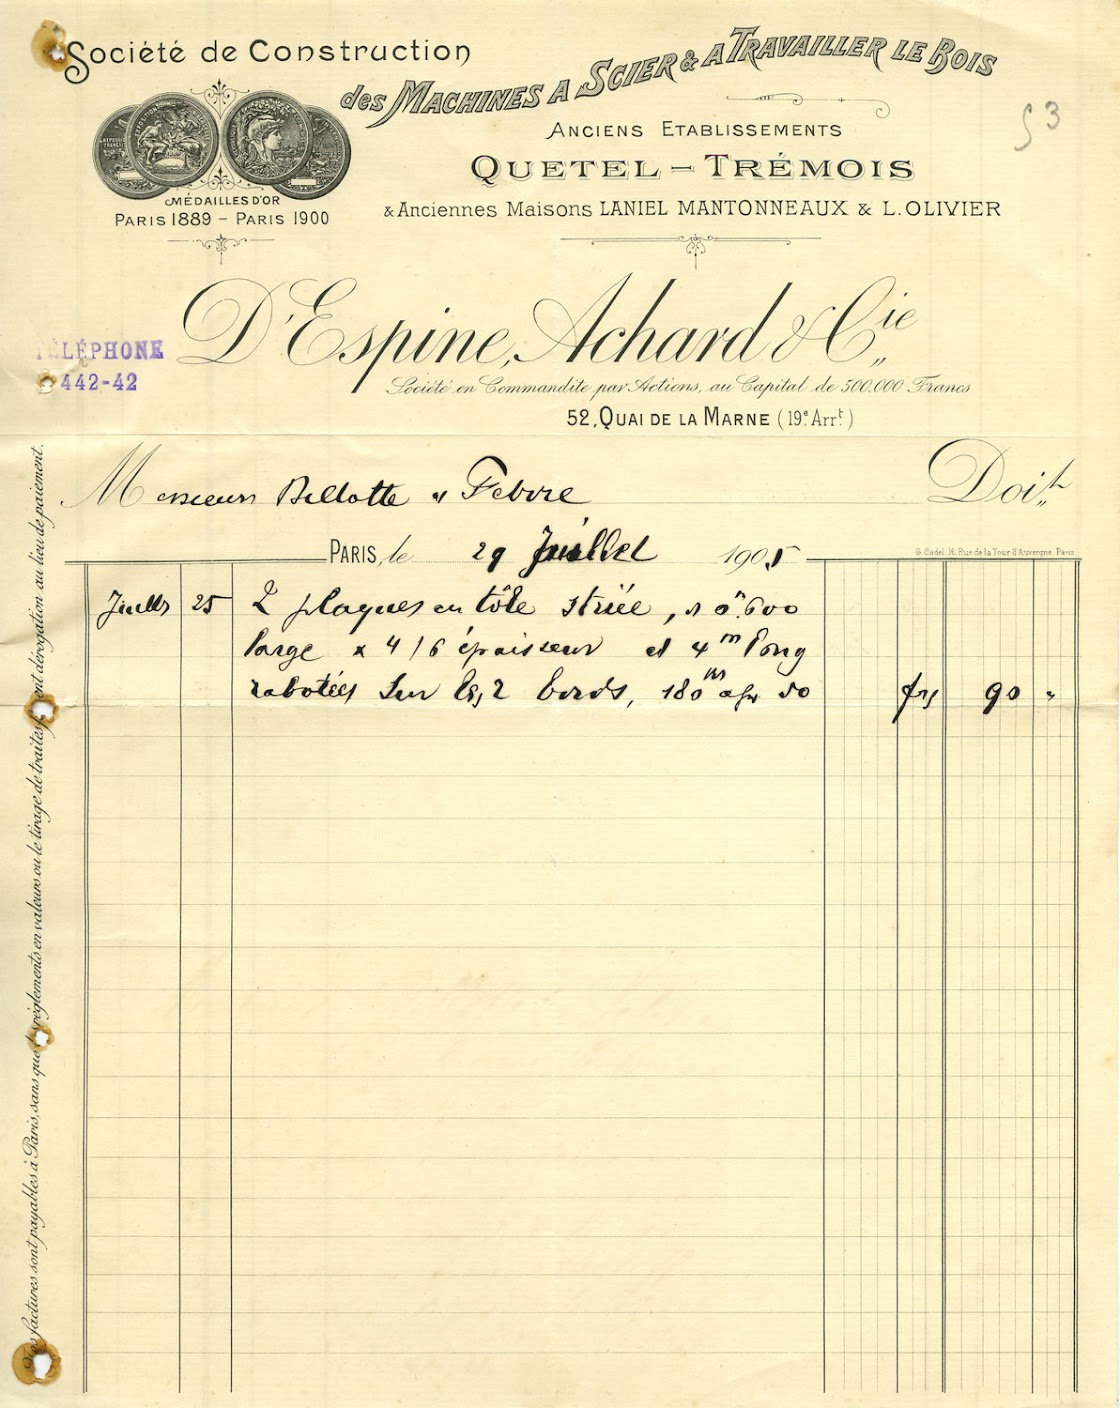 Société de Construction
des MACHINES A SCIER & A TRAVAILLER LE BOIS
53
ANCIENS ETABLISSEMENTS
QUETEL - TRÉMOIS
MÉDAILLES D'OR
PARIS 1889 - PARIS 1900
& Anciennes Maisons LANIEL MANTONNEAUX & L. OLIVIER
D'Espine, Achard & Cie
TÉLÉPHONE
442-42
Société en Commandite par Actions, au Capital de 500.000 Francs
52, QUAI DE LA MARNE (19e Arrt)
Messieurs Billotte & Febvre Doit
PARIS, le 29 Juillet 1905
G. Cadel, 16, Rue de la Tour d'Auvergne, Paris
Juillet 25 2 plaques en tôle striée, 0m.600
large x 4/6 épaisseur et 4m long
rabotées sur les 2 bords, 180 50 frs 90 "
Les factures sont payables à Paris, sans que les règlements en valeurs ou le tirage de traites fassent dérogation au lieu de paiement.